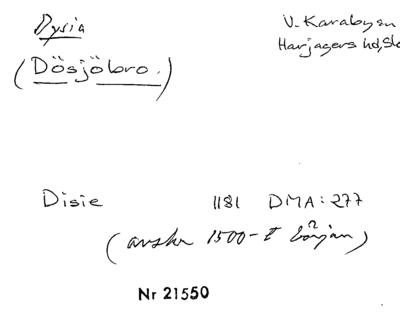 Dysia
(Dösjöbro.)
V. Karaby sn
Harjagers hd, Sk
Disie 1181 DMA: 277
(avskr 1500-t början)
Nr 21550